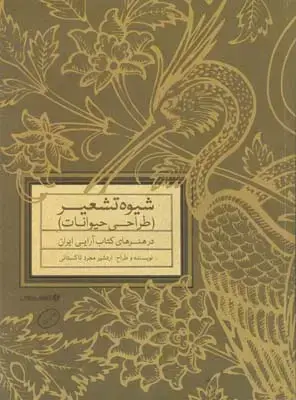 شیوه تشعیر
(طراحی حیوانات)
در هنرهای کتاب آرایی ایران
نویسنده و طراح: اردشیر مجرد تاکستانی